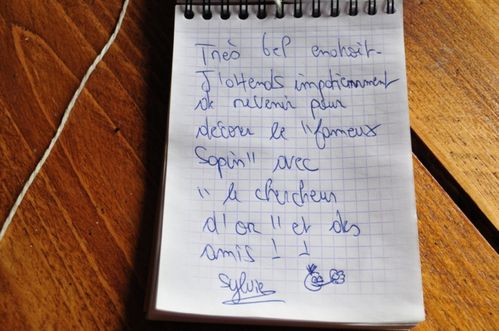 Très bel endroit.
J'attends impatiemment
de revenir pour
décorer le "fameux
Sapin" avec
"le chercheur
d'or" et des
amis ! !
Sylvie